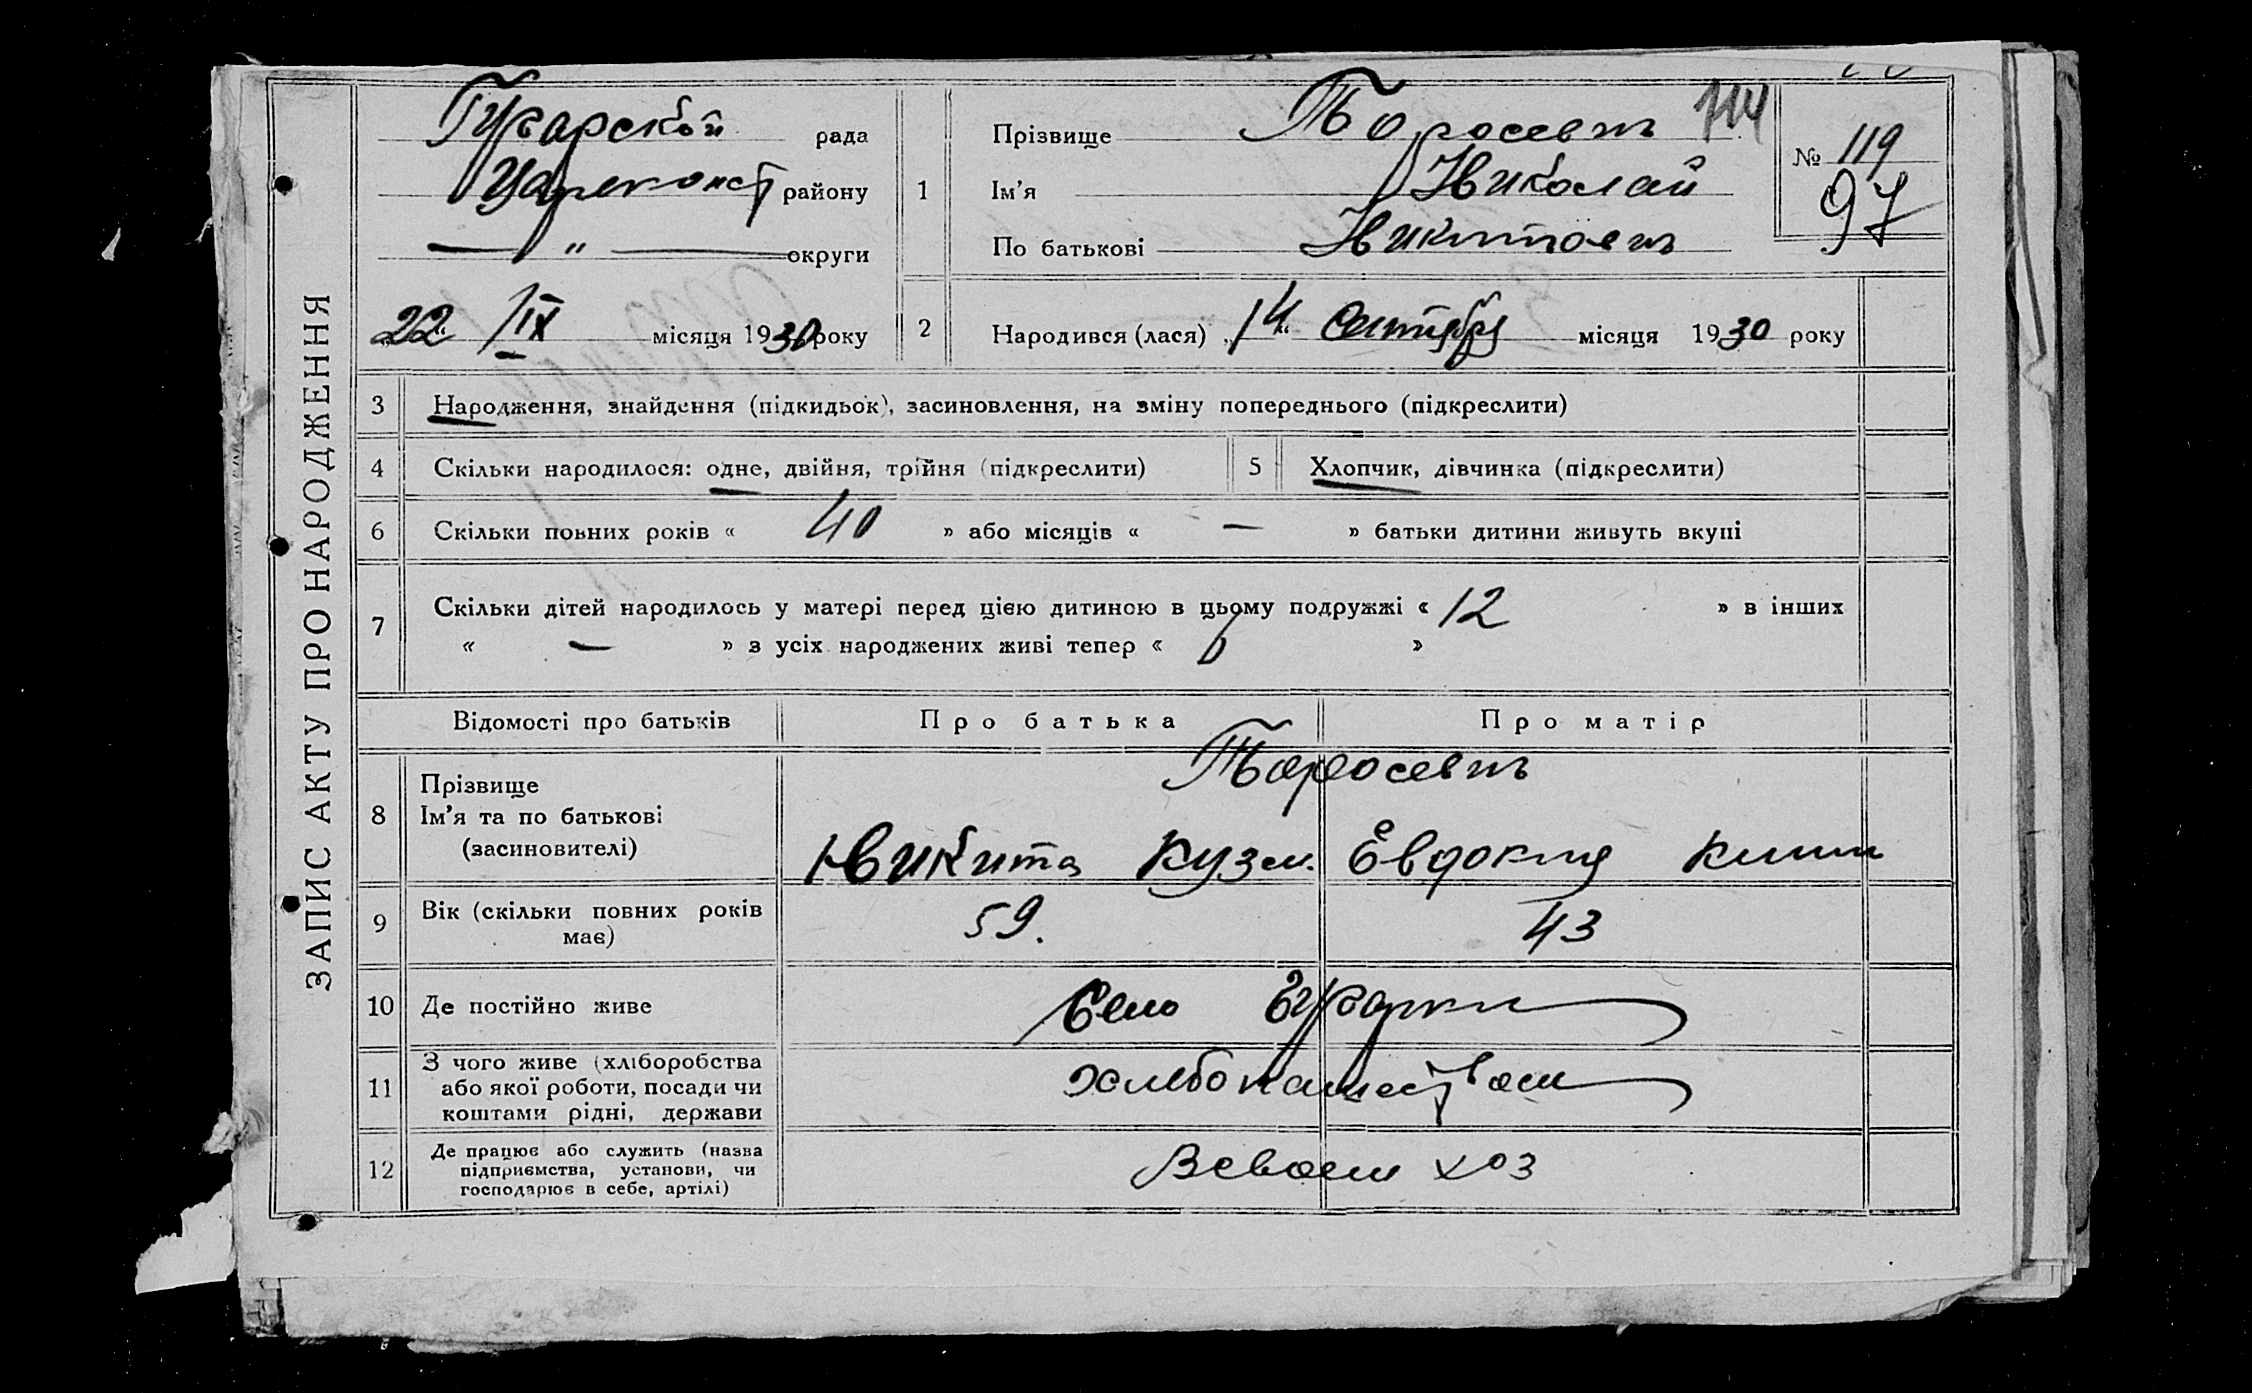 ЗАПИС АКТУ ПРО НАРОДЖЕННЯ
рада
Цареконст району
— " — округи
22 /IX місяця 1930 року
1
Прізвище Тарасевич 114
Ім'я Николай
По батькові Никитович
№ 119
97
2 Народився (лася) „14“ Сентября місяця 1930 року
3 Народження, знайдення (підкидьок), засиновлення, на зміну попереднього (підкреслити)
4 Скільки народилося: одне, двійня, трійня (підкреслити)
5 Хлопчик, дівчинка (підкреслити)
6 Скільки повних років « 40 » або місяців « — » батьки дитини живуть вкупі
7 Скільки дітей народилось у матері перед цією дитиною в цьому подружжі « 12 » в інших
« — » з усіх народжених живі тепер « 6 »
Відомості про батьків Про батька Про матір
8 Прізвище
Ім'я та по батькові
(засиновителі)
Тарасевич
Никита Кузм. Евдокия Клим
9 Вік (скільки повних років
має)
59. 43
10 Де постійно живе Село
11 З чого живе (хліборобства
або якої роботи, посади чи
коштами рідні, держави
Хлебопашеством
12 Де працює або служить (назва
підприємства, установи, чи
господарює в себе, артілі)
Всвоем хоз